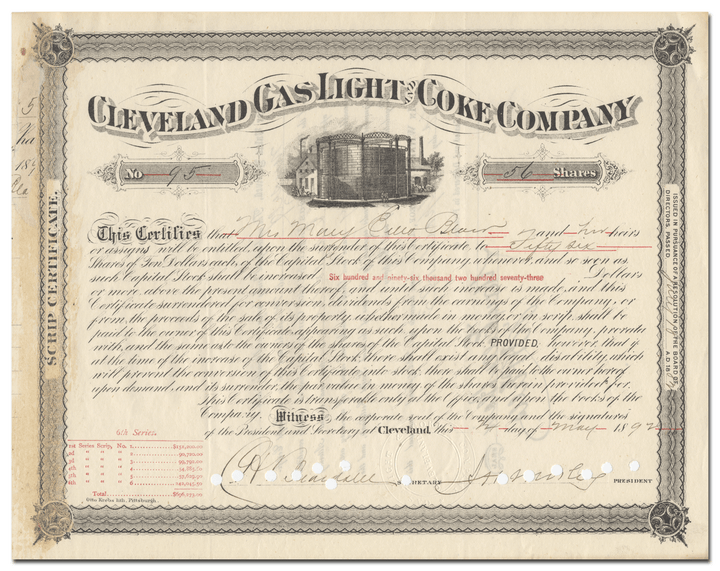 CLEVELAND GAS LIGHT AND COKE COMPANY
No 95
56 Shares
This Certifies that Mrs Mary Ellen and her heirs
or assigns will be entitled upon the surrender of this Certificate to Fifty six
Shares of Ten Dollars each, of the Capital Stock of this Company whenever, and so soon as
such Capital Stock shall be increased Six hundred and ninety-six thousand two hundred seventy-three Dollars
or more above the present amount thereof, and until such increase is made, and this
Certificate surrendered for conversion, dividends from the earnings of the Company, or
from the proceeds of the sale of its property, whether made in money or in scrip, shall be
paid to the owner of this Certificate appearing as such upon the books of the Company, pro rata
with, and the same as to the owners of the shares of the Capital Stock PROVIDED, however, that if
at the time of the increase of the Capital Stock there shall exist any legal disability which
will prevent the conversion of this Certificate into stock, there shall be paid to the owner hereof
upon demand, and its surrender, the par value in money of the shares herein provided for.
This Certificate is transferable only at the Office, and upon the books of the
Company. Witness, the corporate seal of the Company and the signatures
of the President and Secretary at Cleveland, this 12 day of May 1892
SECRETARY
PRESIDENT
6th Series.
1st Series Scrip, No. 1
2nd " " " 2
3d " " " 3
4th " " " 4
5th " " " 5
6th " " " 6
Total $696,273.00
Otto Krebs lith, Pittsburgh.
SCRIP CERTIFICATE.
ISSUED IN PURSUANCE OF A RESOLUTION OF THE BOARD OF
DIRECTORS, PASSED A.D. 18